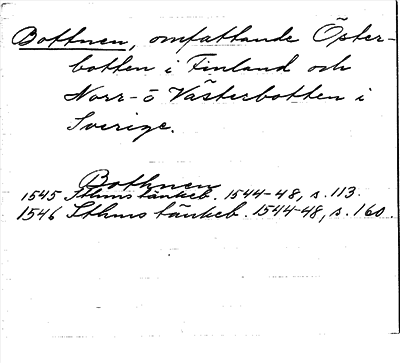 Bottnen, omfattande Öster-
botten i Finland och
Norr- o Västerbotten i
Sverige.
Bothnen
1545 Sthms tänkeb. 1544-48, s. 113.
1546 Sthms tänkeb. 1544-48, s. 160.